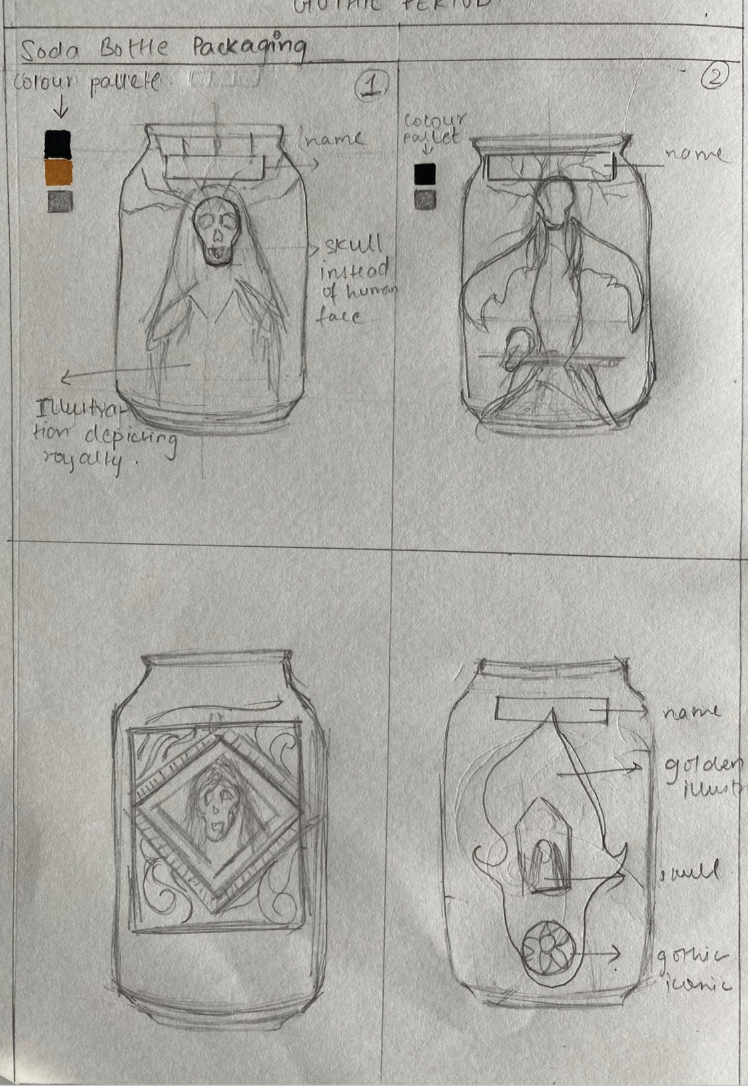 GOTHIC PERIOD
Soda Bottle Packaging
Colour pallete.
1
name
skull
instead
of human
face
Illustra-
tion depicting
royalty.
2
Colour
pallet
name
name
golden
illustr
skull
gothic
iconic